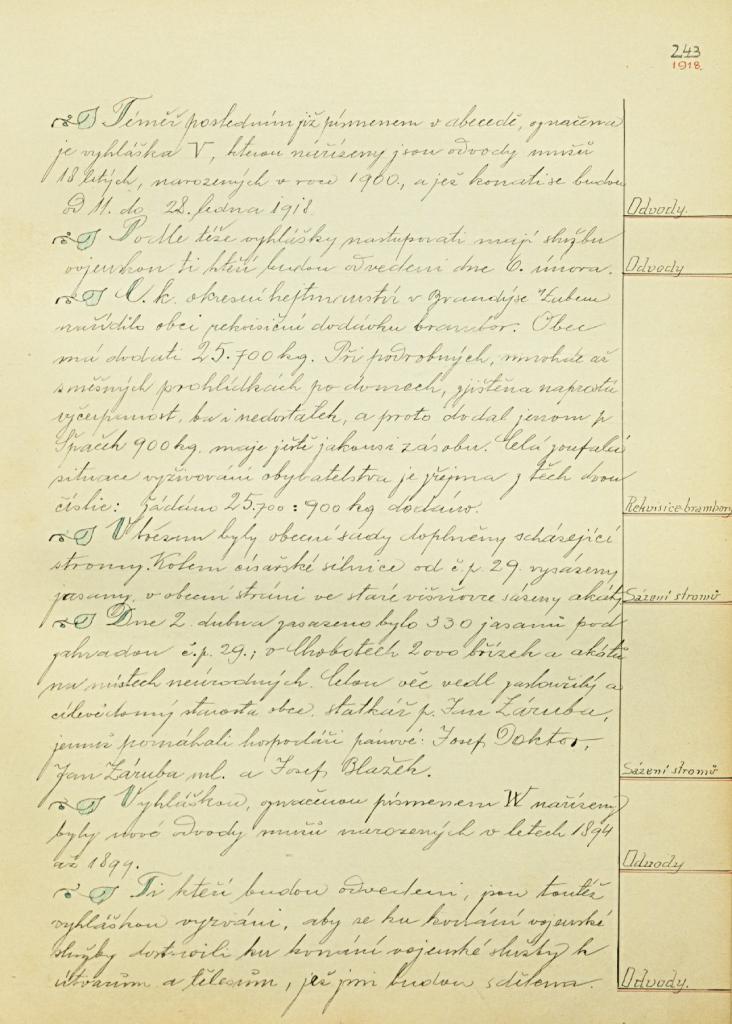 243
1918.
Téměř posledním již písmenem v abecedě, označena
je vyhláška V, kterou nařízeny jsou odvody mužů
18 letých, narozených v roce 1900, a jež konati se budou
od 11. do 28. ledna 1918.
Odvody.
Podle téže vyhlášky nastupovati mají službu
vojenskou ti kteří budou odvedeni dne 6. února.
Odvody
C. k. okresní hejtmanství v Brandýse n/Labem
nařídilo obci rekvisiční dodávku brambor. Obec
má dodati 25.700 kg. Při podrobných, mnohde až
směšných prohlídkách po domech, zjištěna naprostá
vyčerpanost, ba i nedostatek, a proto dodal jenom p.
Špaček 900 kg. maje ještě jakousi zásobu. Celá zoufalá
situace vyživování obyvatelstva je zřejma z těch dvou
číslic: žádáno 25.700 : 900 kg dodáno.
Rekvisice brambory
V březnu byly obecní sady doplněny scházející
stromy. Kolem císařské silnice od č.p. 29. vysázeny
jasany, v obecní stráni ve staré višňovce sázeny akáty
Sázení stromů
Dne 2. dubna zasazeno bylo 330 jasanů pod
zahradou č.p. 29.; v Chobotech 2000 břízek a akátů
na místech neúrodných. Celou věc vedl zasloužilý a
cílevědomý starosta obce, statkář p. Jan Záruba,
jemuž pomáhali hospodáři pánové: Josef Doktor,
Jan Záruba ml. a Josef Blažek.
Sázení stromů
Vyhláškou, označenou písmenem W nařízeny
byly nové odvody mužů narozených v letech 1894
až 1899.
Odvody
Ti kteří budou odvedeni, jsou toutéž
vyhláškou vyzváni, aby se ku konání vojenské
služby dostavili ku konání vojenské služby k
útvarům a tělesům, jež jim budou sdělena.
Odvody.